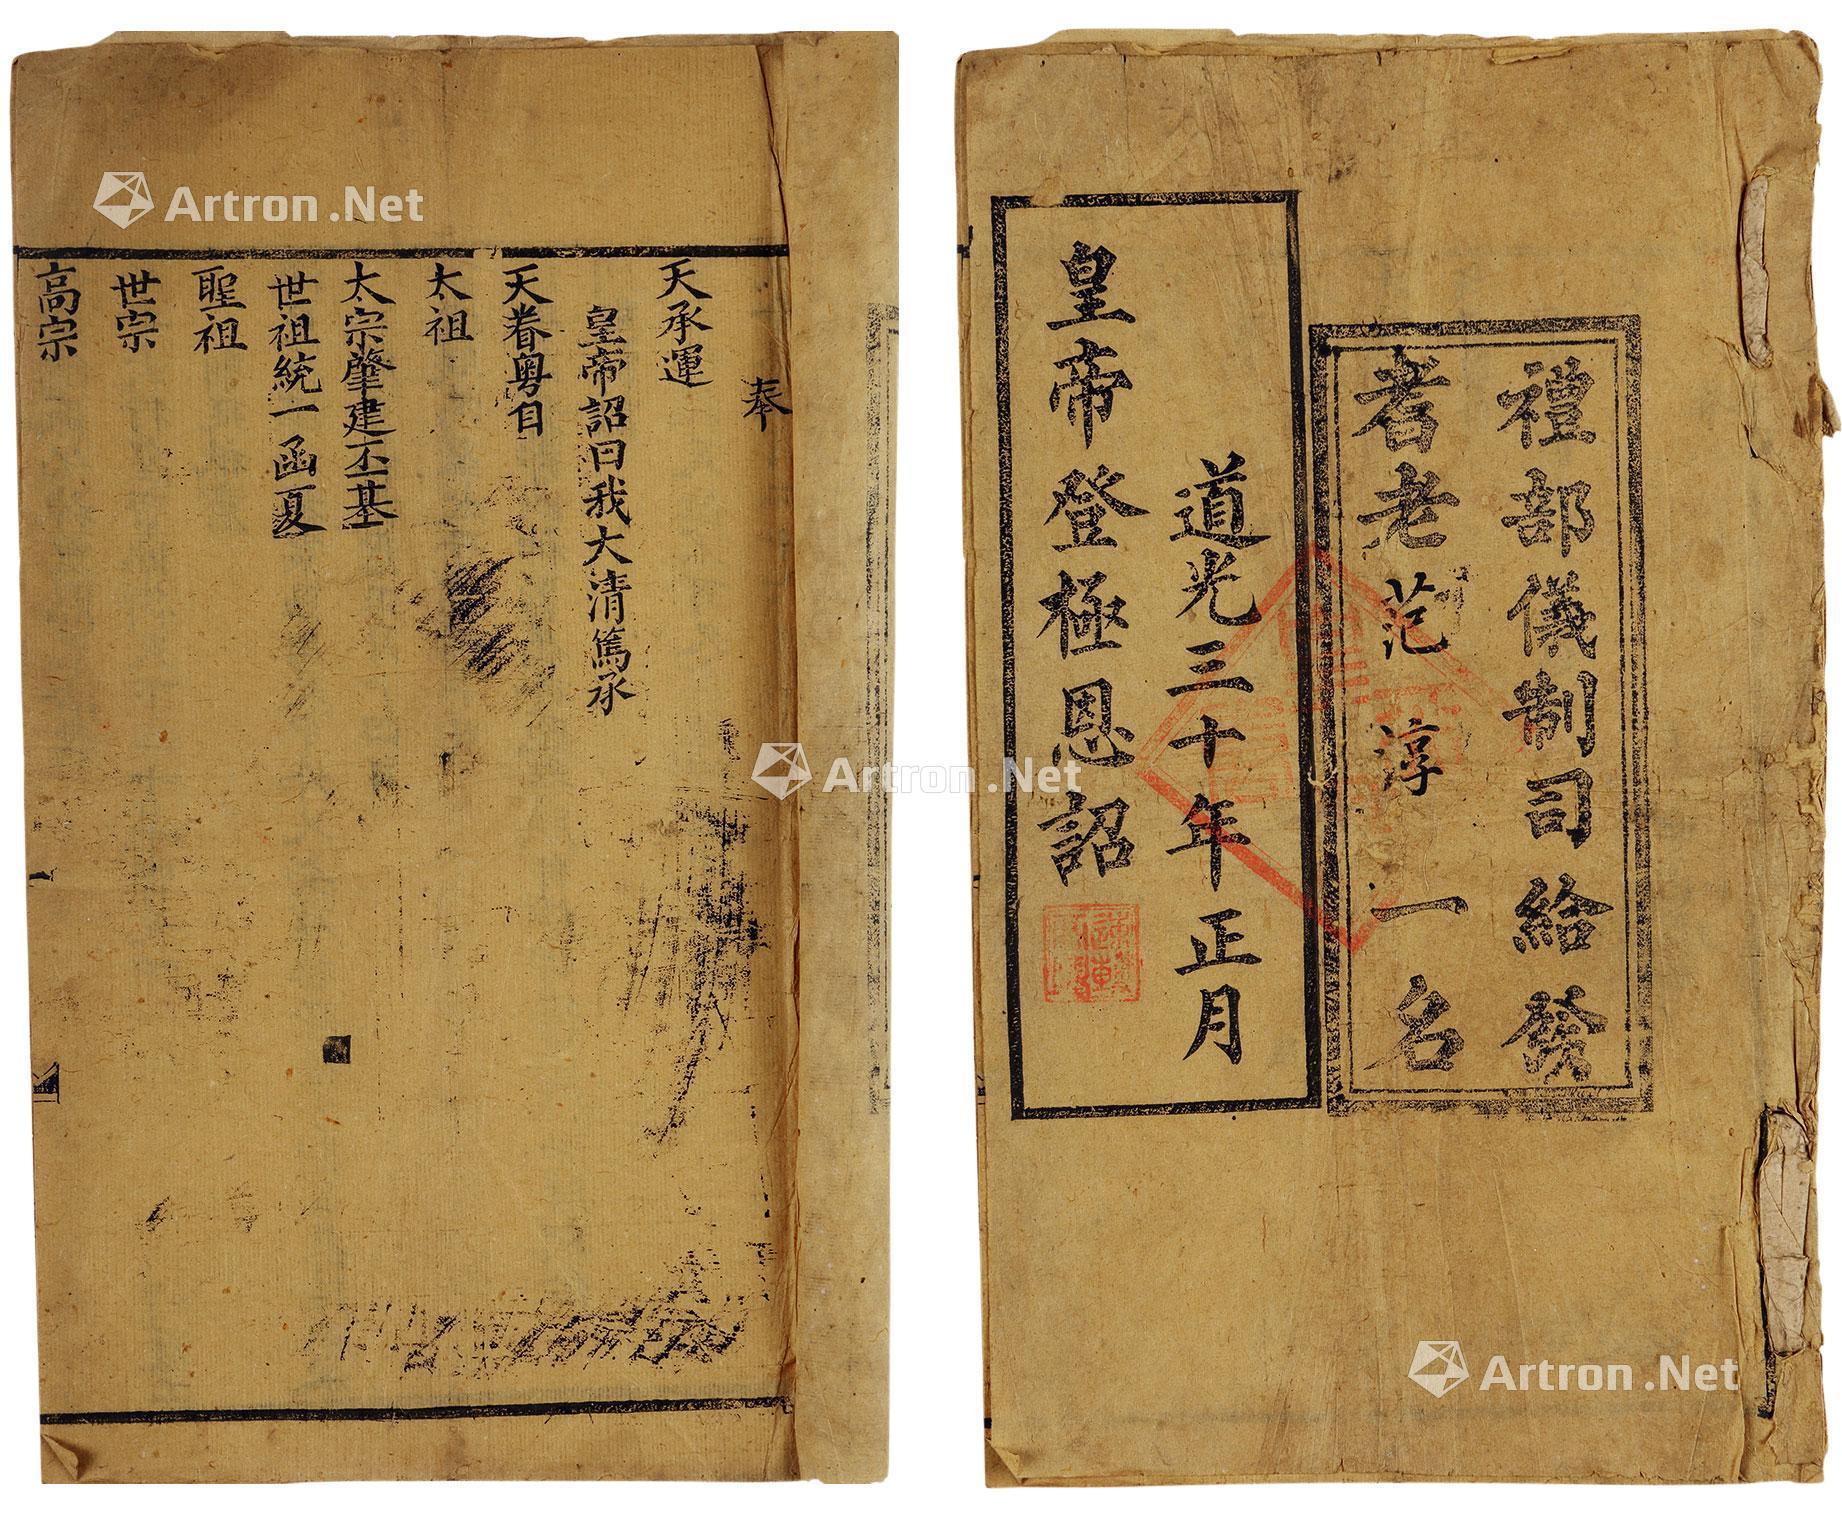 禮部儀制司給發
耆老范淳一名
道光三十年正月
皇帝登極恩詔
奉
天承運
皇帝詔曰我大清篤承
天眷粤自
太祖
太宗肇建丕基
世祖統一函夏
聖祖
世宗
高宗
Artron.Net
Artron.Net
Artron.Net